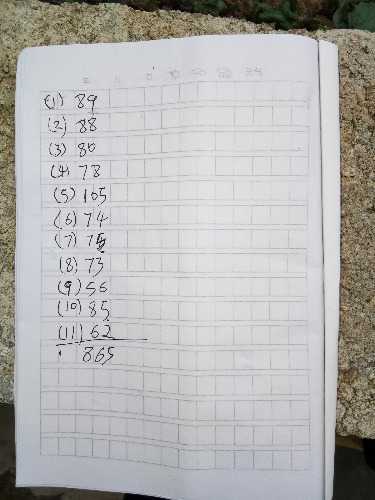 (1) 89
(2) 88
(3) 80
(4) 78
(5) 105
(6) 74
(7) 75
(8) 73
(9) 56
(10) 85
(11) 62
865